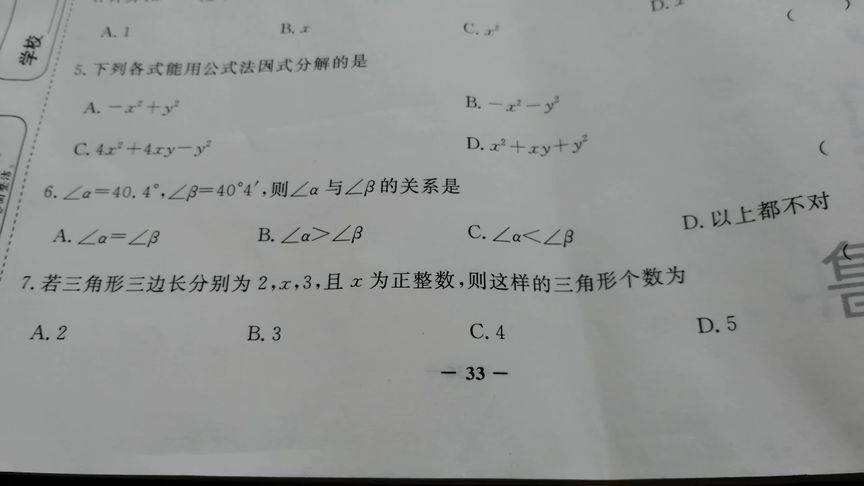 A. 1 B. x C. x² D.
学校
5. 下列各式能用公式法因式分解的是
A. －x²＋y² B. －x²－y²
C. 4x²＋4xy－y² D. x²＋xy＋y² (
6. ∠α＝40.4°,∠β＝40°4′,则∠α与∠β的关系是
A. ∠α＝∠β B. ∠α＞∠β C. ∠α＜∠β D. 以上都不对
7. 若三角形三边长分别为 2,x,3,且 x 为正整数,则这样的三角形个数为 (
A. 2 B. 3 C. 4 D. 5
－ 33 －